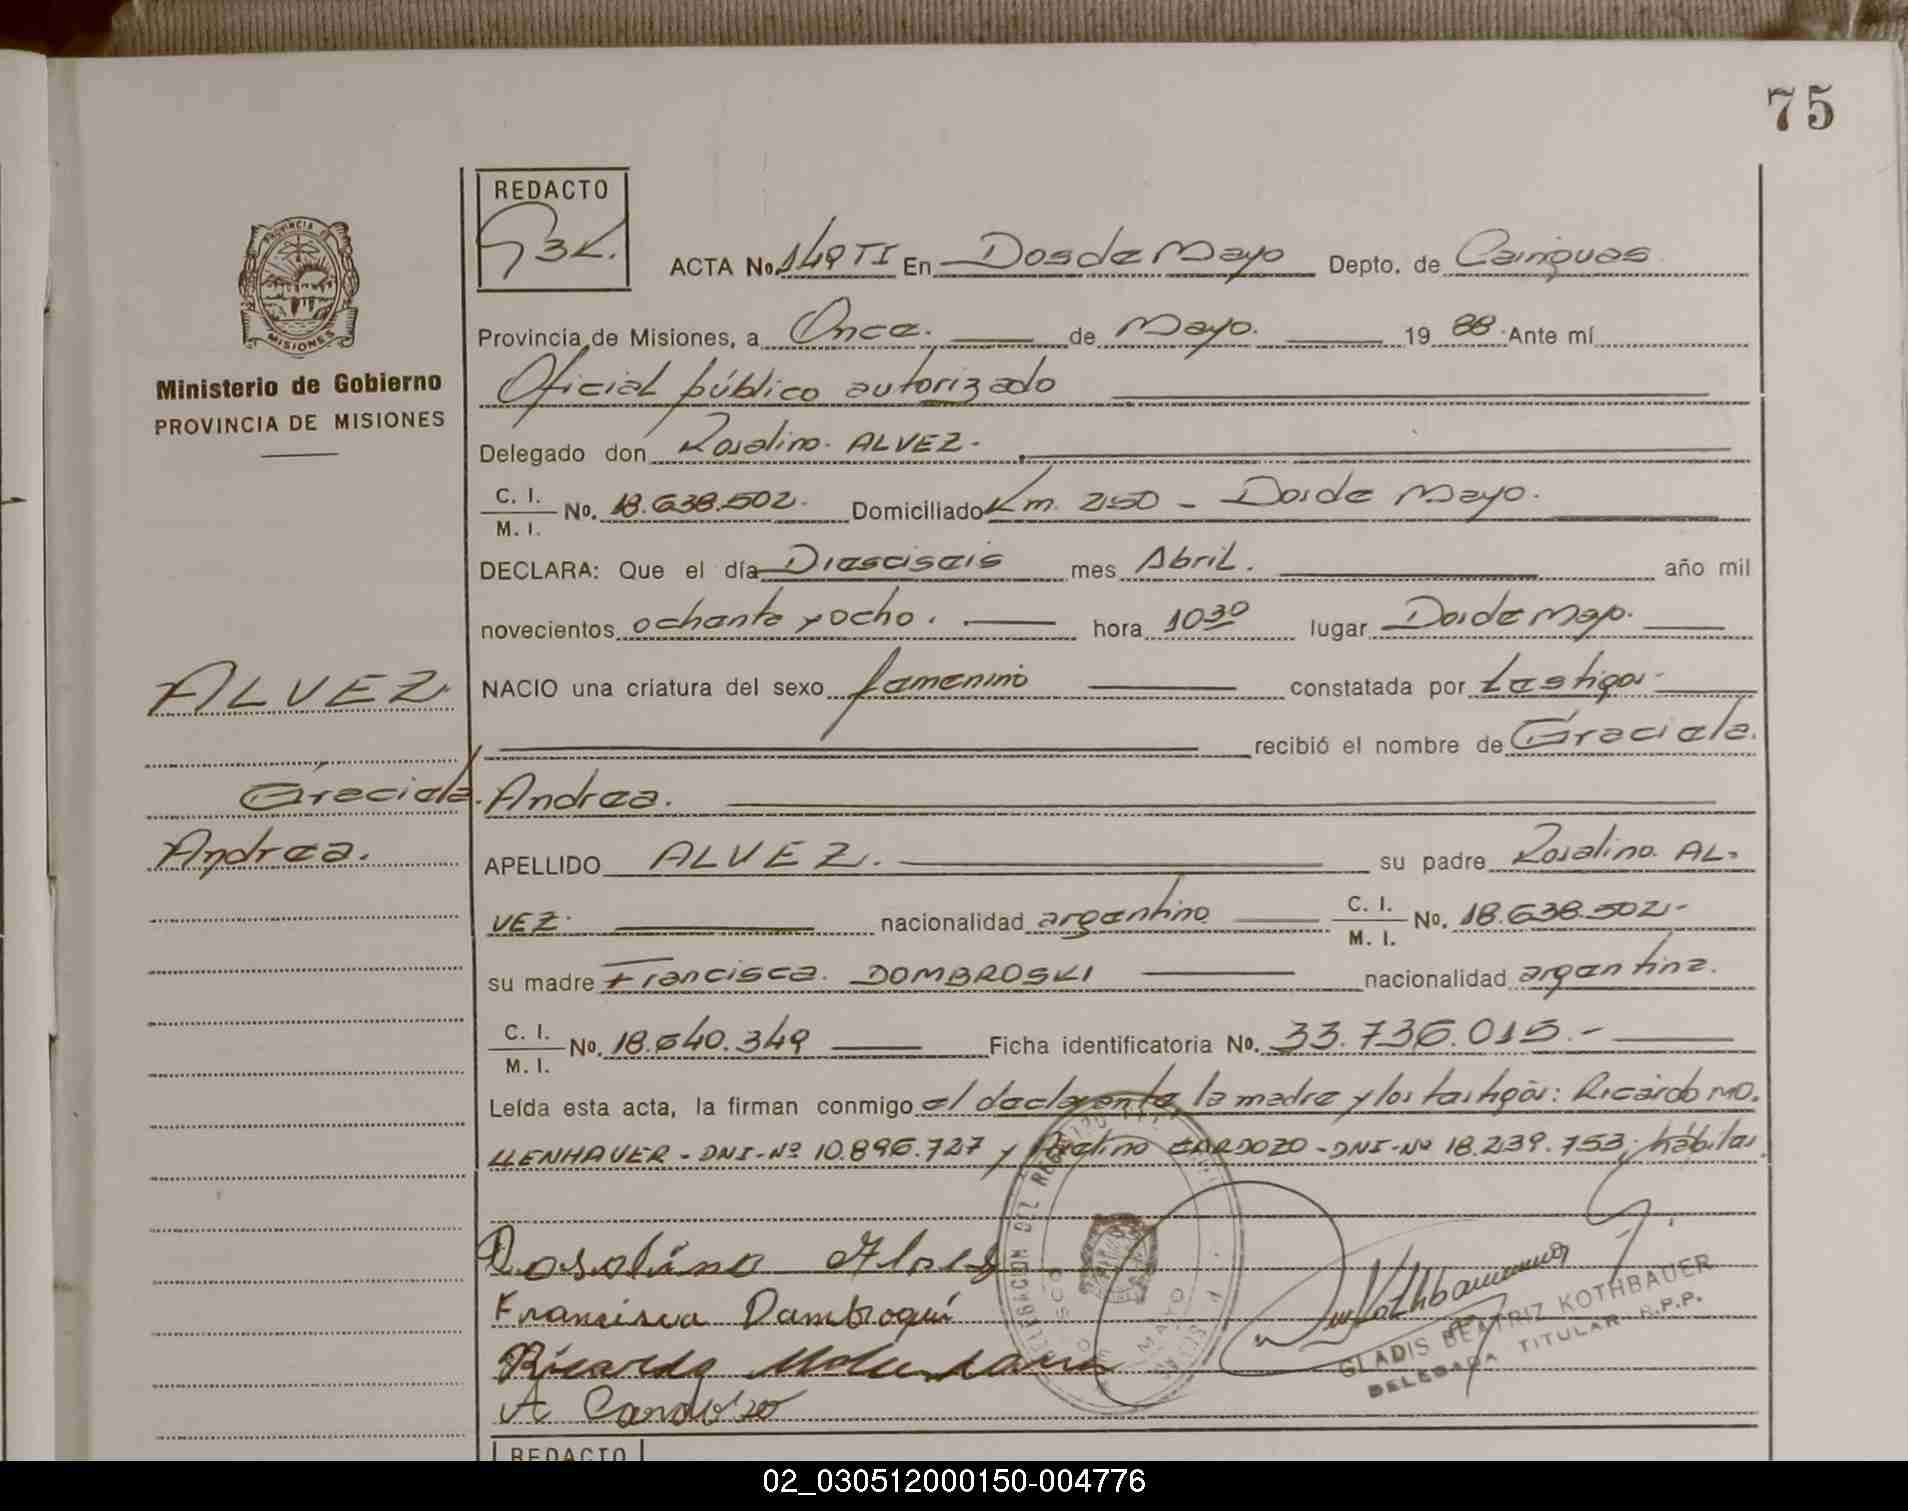 75
REDACTO
PROVINCIA DE
MISIONES
Ministerio de Gobierno
PROVINCIA DE MISIONES
ACTA No. 149 TI En Dos de Mayo Depto. de Cainguas
Provincia de Misiones, a Once. de Mayo. 19 88 Ante mí
Oficial público autorizado
Delegado don Rosalino. ALVEZ.
C. I.
M. I. No. 18.638.502. Domiciliado Km. 250 - Dos de Mayo.
DECLARA: Que el día Diesciseis mes Abril. año mil
novecientos ochenta y ocho. hora 10 30 lugar Dos de Mayo.
NACIO una criatura del sexo femenino constatada por testigos
recibió el nombre de Graciela.
Andrea.
ALVEZ.
Graciela.
Andrea.
APELLIDO ALVEZ. su padre Rosalino. AL-
VEZ. nacionalidad argentino C. I.
M. I. No. 18.638.502.-
su madre Francisca. DOMBROSKI nacionalidad argentina.
C. I.
M. I. No. 18.640.349 Ficha identificatoria No. 33.736.015.-
Leída esta acta, la firman conmigo el declarante, la madre y los testigos: Ricardo MO.
LLENHAUER - DNI-Nº 10.896.727 y CARDOZO - DNI-Nº 18.239.753; hábiles
Rosolino
Francisca Dambroqui
Ricardo
A Cardozo
GLADIS BEATRIZ KOTHBAUER
DELEGADA TITULAR R.P.P.
REDACTO
02_030512000150-004776